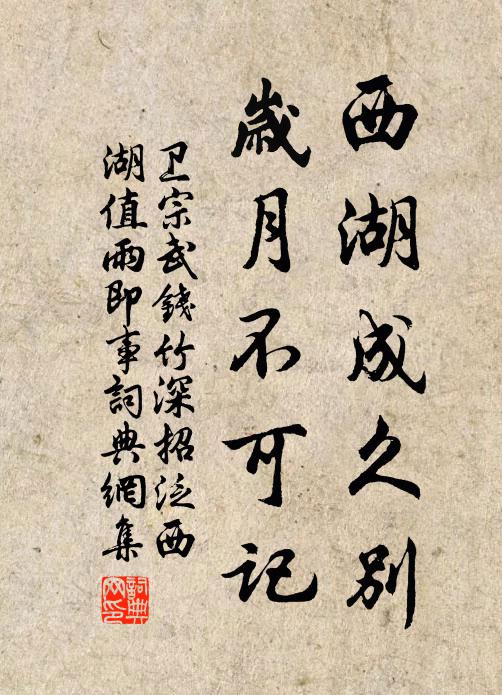 西湖成久别
歳月不可记
卫宗武錢竹深招泛西
湖值雨即事詞典網集
詞典
网印